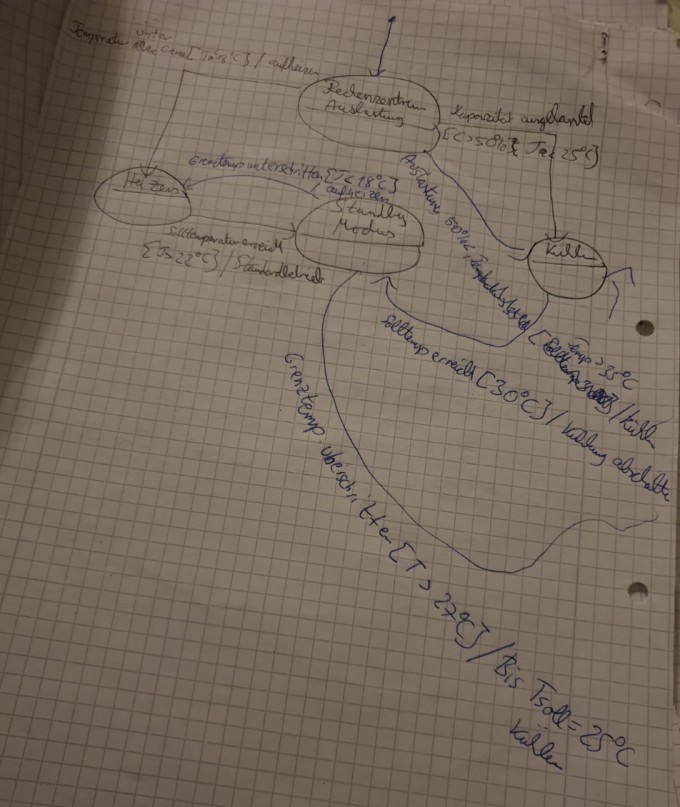 unter
Temperatur / aufheizen
Rechenzentrum
Auslastung
Kapazität ausgelastet
[C>50% & T<25°C]
Grenztemp unterschritten [T<18°C]
/ aufheizen
Heizen
Standby
Modus
Solltemperatur erreicht
[T>22°C] / Standardbetrieb
Kühlen
Auslastung 50%
Temp >35°C
/ Kühlen
Solltemp erreicht [30°C] / Kühlung abschalten
Grenztemp. überschritten [T > 27°C] / Bis Tsoll = 25°C
kühlen